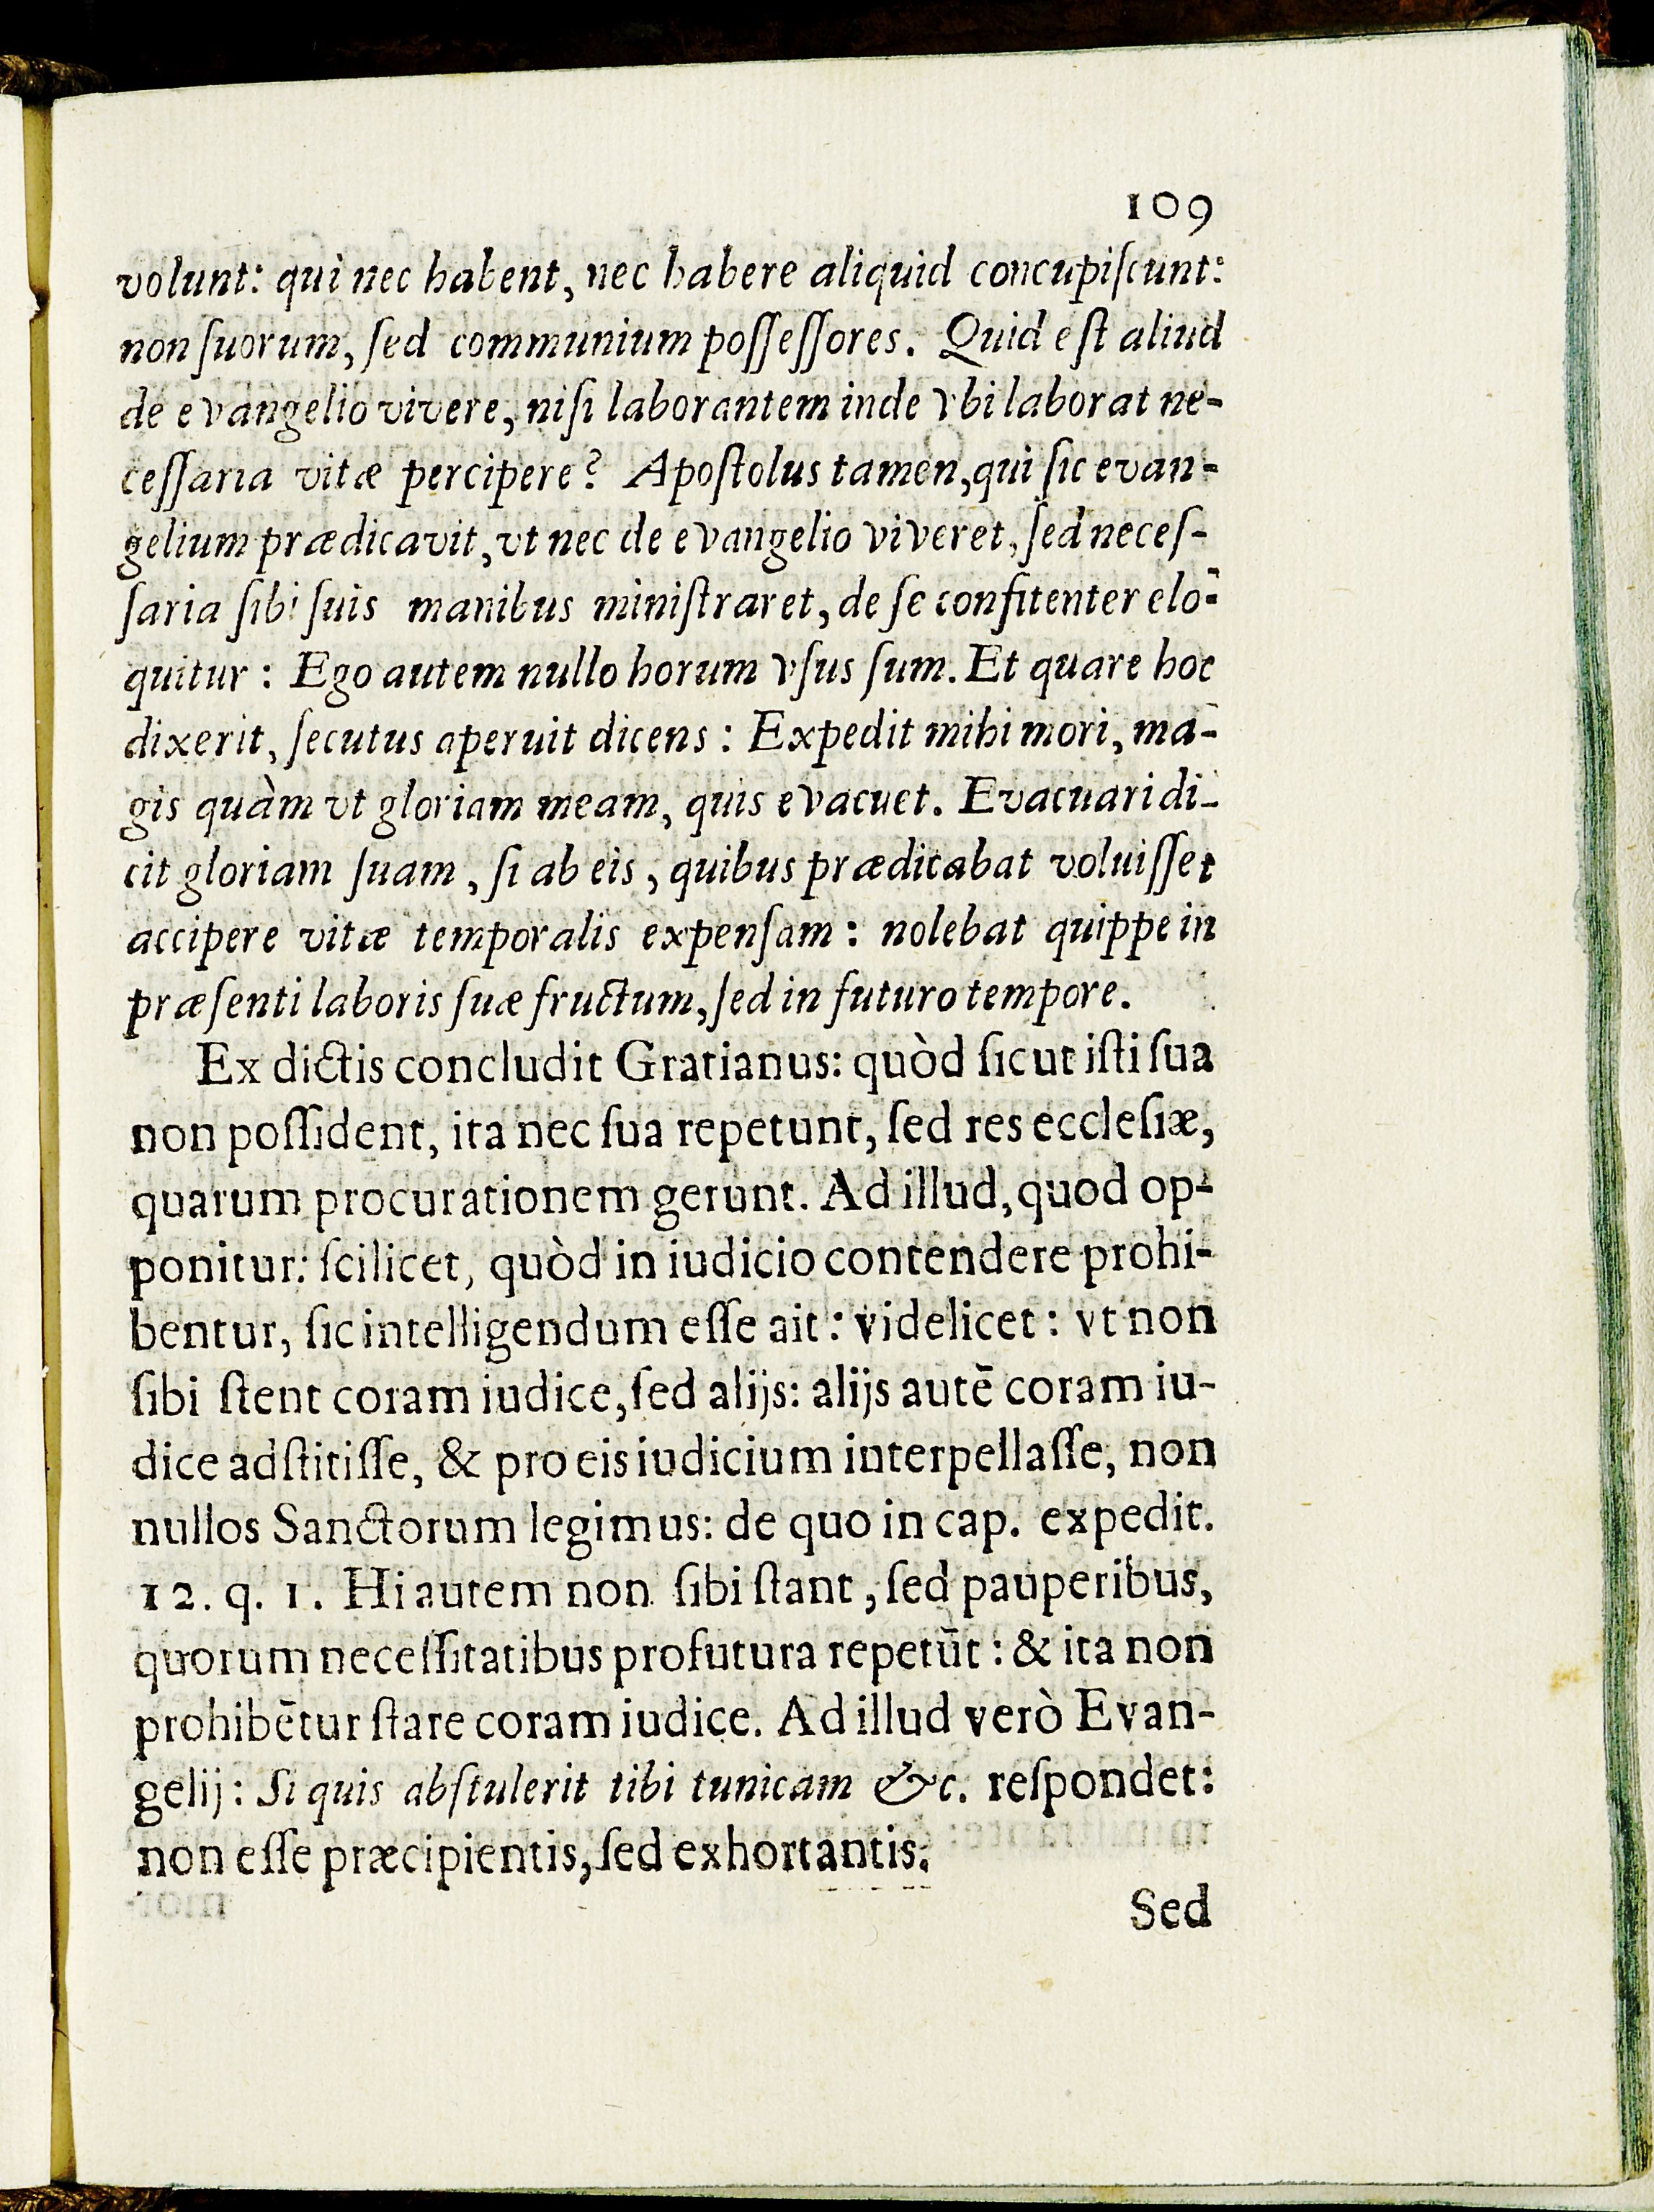 109
volunt: qui nec habent, nec habere aliquid concupiſcunt:
non ſuorum, ſed communium poſſeſſores. Quid eſt aliud
de evangelio vivere, niſi laborantem inde vbi laborat ne-
ceſſaria vitæ percipere? Apoſtolus tamen, qui ſic evan-
gelium prædicavit, vt nec de evangelio viveret, ſed neceſ-
ſaria ſibi ſuis manibus miniſtraret, de ſe confitenter elo-
quitur: Ego autem nullo horum vſus ſum. Et quare hoc
dixerit, ſecutus aperuit dicens: Expedit mihi mori, ma-
gis quàm vt gloriam meam, quis evacuet. Evacuari di-
cit gloriam ſuam, ſi ab eis, quibus prædicabat voluiſſet
accipere vitæ temporalis expenſam: nolebat quippe in
præſenti laboris ſuæ fructum, ſed in futuro tempore.
Ex dictis concludit Gratianus: quòd ſicut iſti ſua
non poſſident, ita nec ſua repetunt, ſed res eccleſiæ,
quarum procurationem gerunt. Ad illud, quod op-
ponitur: ſcilicet, quòd in iudicio contendere prohi-
bentur, ſic intelligendum eſſe ait: videlicet: vt non
ſibi ſtent coram iudice, ſed alijs: alijs autē coram iu-
dice adſtitiſſe, & pro eis iudicium interpellaſſe, non
nullos Sanctorum legimus: de quo in cap. expedit.
12. q. 1. Hi autem non ſibi ſtant, ſed pauperibus,
quorum neceſſitatibus profutura repetūt: & ita non
prohibētur ſtare coram iudice. Ad illud verò Evan-
gelij: Si quis abſtulerit tibi tunicam &c. reſpondet:
non eſſe præcipientis, ſed exhortantis.
Sed